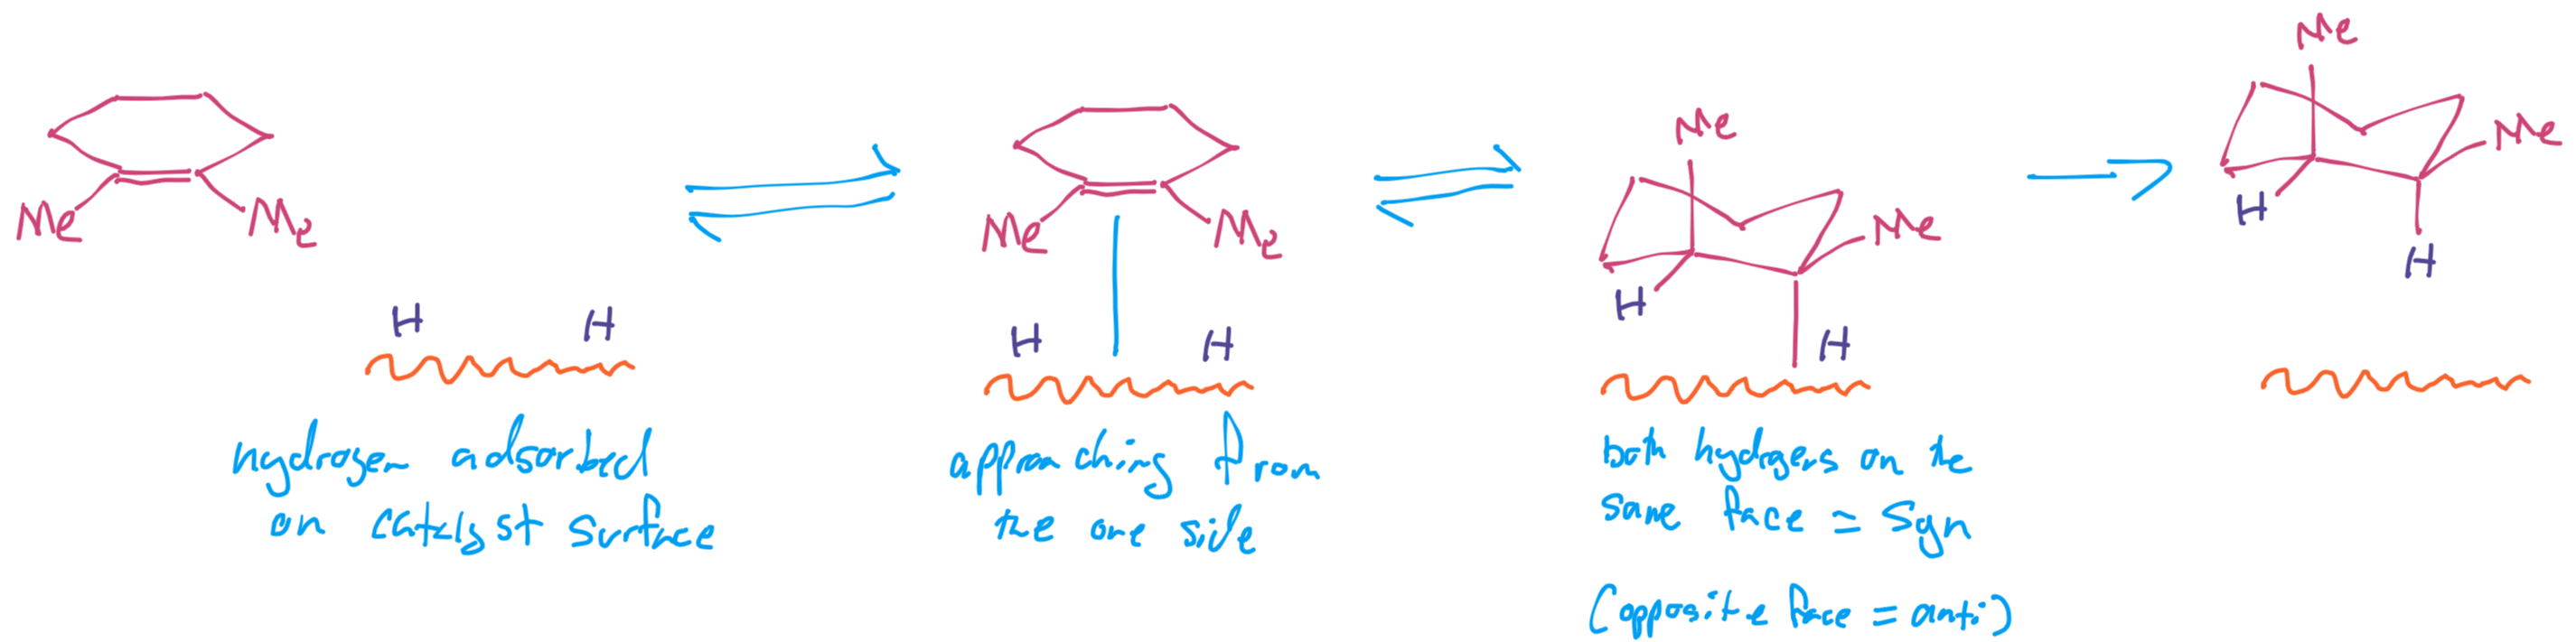 Me
Me
H H
hydrogen adsorbed
on catalyst surface
Me
Me
H H
approaching from
the one side
Me
Me
H
H
both hydrogens on the
same face = syn
(opposite face = anti)
Me
Me
H
H